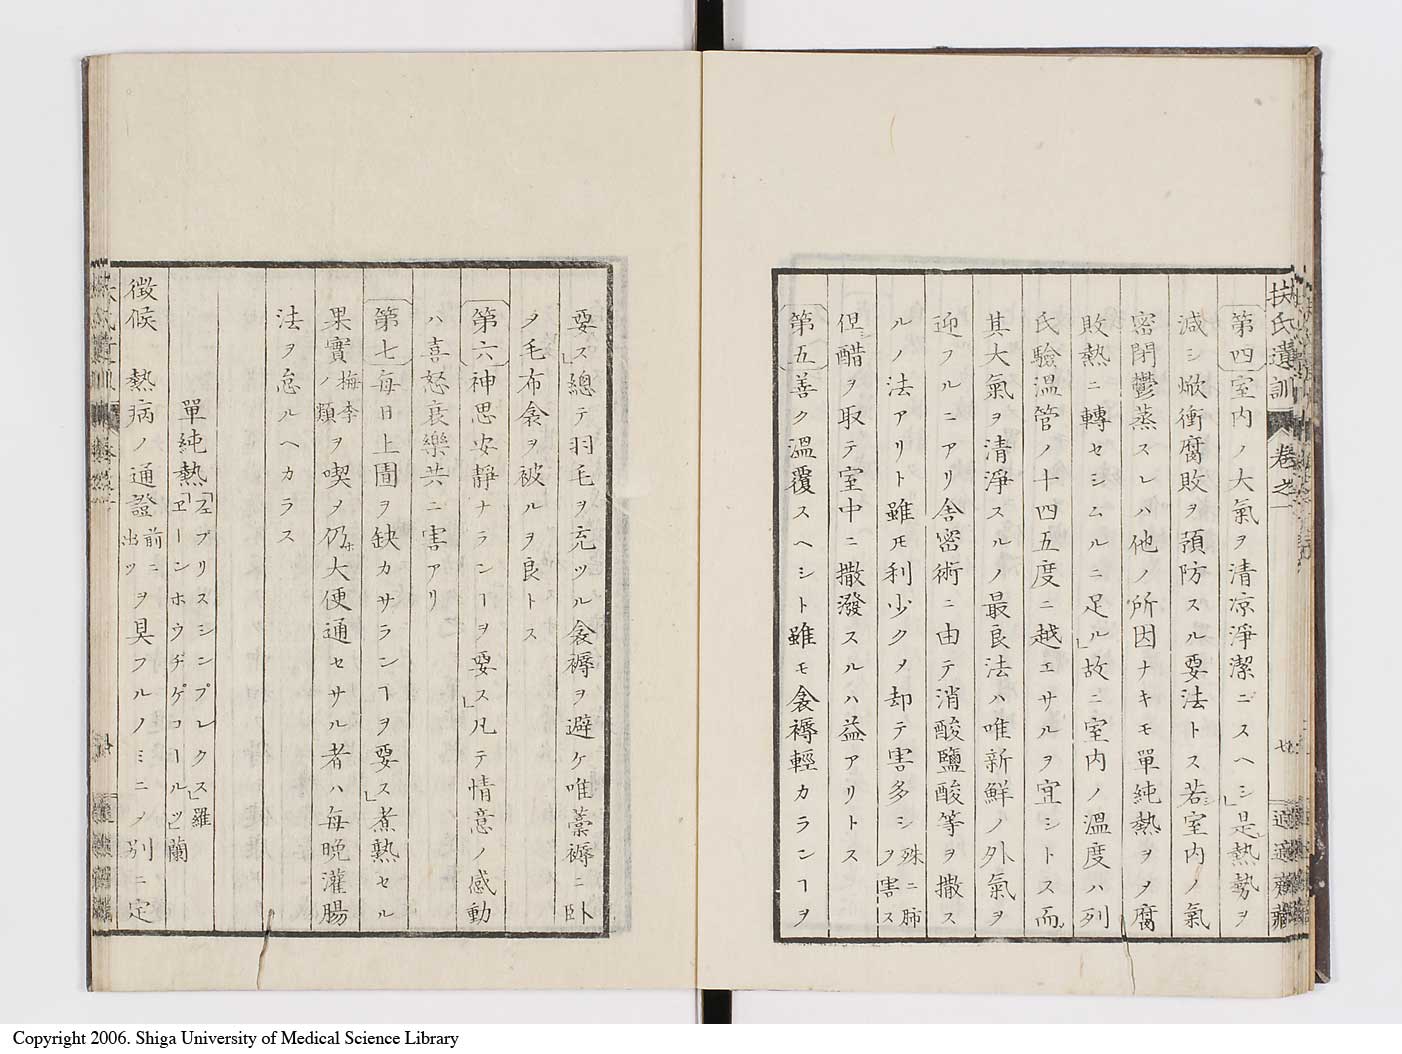 扶氏遺訓 卷之一 適適齋藏
第四室内ノ大氣ヲ清凉淨潔ニスヘシ是熱勢ヲ
減シ焮衝腐敗ヲ預防スル要法トス若シ室内ノ氣
密閉鬱蒸スレハ他ノ所因ナキモ單純熱ヲメ腐
敗熱ニ轉セシムルニ足ル故ニ室内ノ溫度ハ列
氏驗溫管ノ十四五度ニ越エサルヲ宜シトス而
其大氣ヲ清淨スルノ最良法ハ唯新鮮ノ外氣ヲ
迎フルニアリ舍密術ニ由テ消酸鹽酸等ヲ撒ス
ルノ法アリト雖𪜈利少クメ却テ害多シ殊ニ肺ヲ害ス
但醋ヲ取テ室中ニ撒潑スルハ益アリトス
第五善ク溫覆スヘシト雖モ衾褥輕カランヿヲ
要ス總テ羽毛ヲ充ツル衾褥ヲ避ケ唯藁褥ニ臥
ヲ毛布衾ヲ被ルヲ良トス
第六神思安靜ナランヿヲ要ス凡テ情意ノ感動
ハ喜怒哀樂共ニ害アリ
第七每日上圊ヲ缺カサランヿヲ要ス煮熟セル
果實梅李ノ類ヲ喫メ仍ホ大便通セサル者ハ每晩灌腸
法ヲ怠ルヘカラス
單純熱「フェブリスシンプレクス」羅「エーンホウヂゲコールツ」蘭
徵候 熱病ノ通證前ニ出ツヲ具フルノミニメ別ニ定